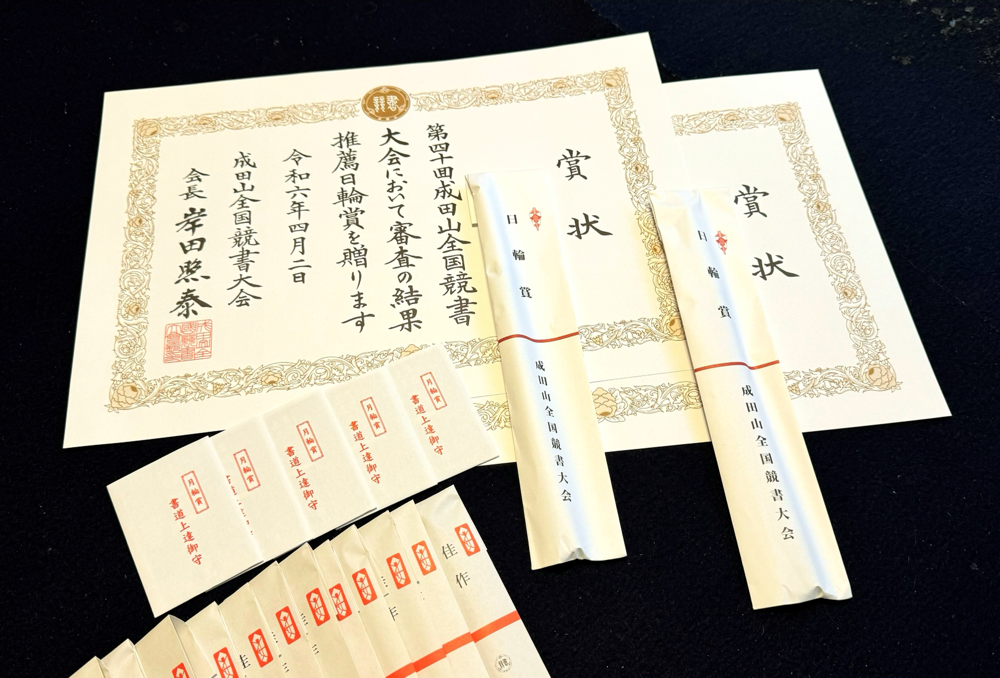 賞状
第四十回成田山全国競書
大会において審査の結果
推薦日輪賞を贈ります
令和六年四月二日
成田山全国競書大会
会長 岸田照泰
賞状
日輪賞
成田山全国競書大会
日輪賞
成田山全国競書大会
月輪賞
書道上達御守
月輪賞
書道上達御守
月輪賞
書道上達御守
月輪賞
月輪賞
書道上達御守
佳作